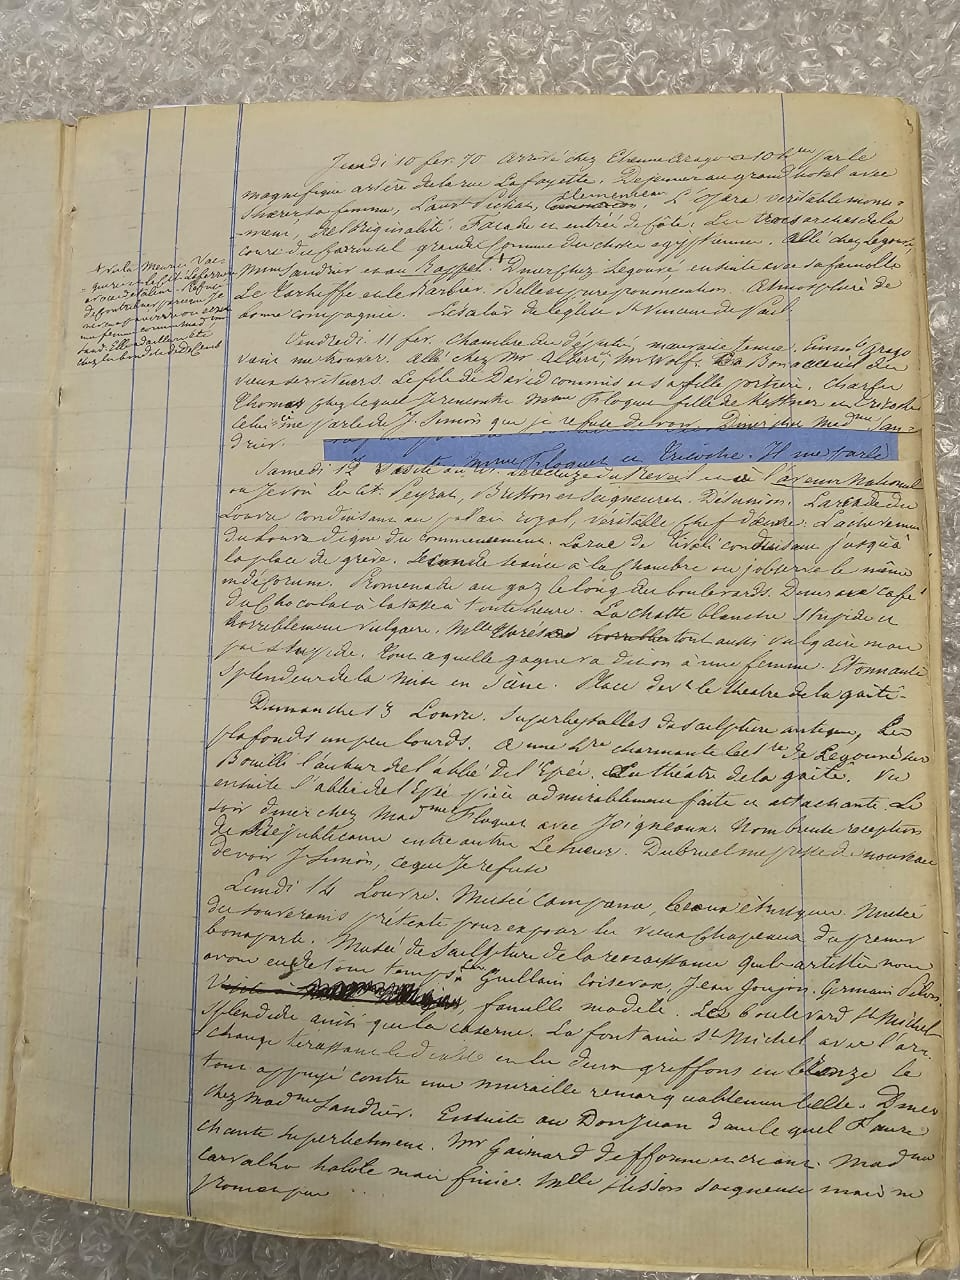 3
Jeudi 10 fev. 70 arrivé chez Etienne Arago a 10 h par le
magnifique artère de la rue Lafayette. Dejeuner au grand hotel avec
sa femme, Laurent Pichat, Clemenceau. L'Opera véritable monu-
-ment, de l'originalité. Facade et entrée de côté. Les trois arches de la
cour du Carrousel grande comme du choix egyptienne. Allé chez Legouvé,
Mme Sandrier et au Rappel. + Diner chez Legouvé ensuite avec sa famille
Le Tartuffe et le Barbier. Belle et pure prononciation. Atmosphère de
bonne compagnie. L'éclat de l'église St Vincent de Paul.
Vendredi 11 fev. Chambre des députés, mauvaise tenue. Emml Arago
vient me trouver. Allé chez Mr Albert, Mr Wolf. La Bonne
vieux serviteurs. Le fils de David commis et sa fille portière. Charles
Thomas chez lequel je rencontre Mme Floquet fille de Kestner et
Celui-ci me parle de J. Simon que je refuse de voir. Diner chez Madme San-
drier.
Mme Floquet et . Il me parle
Samedi 12 Visite au Reveil et à l'avenir National
ou je vois Peyrat, Brisson et Seigneuret. Désunion. L'arcade du
Louvre conduisant au palais royal, véritable chef d'œuvre. L'achevement
du Louvre digne du commencement. La rue de Rivoli conduisant jusqu'à
la place de grève. Seconde séance à la Chambre ou j'observe le même
indécorum. Promenade au gaz le long des boulevards. Diner au café
du Chocolat à la tasse à toute heure. La chatte blanche stupide et
horriblement vulgaire. Mlle Thérésa tout aussi vulgaire mais
pas stupide. Tout ce qu'elle gagne va dit on à une femme. Etonnante
splendeur de la mise en scène. Place devt le theatre de la gaité.
Dimanche 13 Louvre. Superbes salles de sculpture antique, les
plafonds un peu lourds. a une hre charmante de Legouvé sur
Bouilli l'auteur de l'abbé de l'Epée. Au théâtre de la gaité. Vu
ensuite l'abbé de l'Epée pièce admirablement faite et attachante. Le
soir diner chez Madme Floquet avec Joigneaux. Nombreuse reception
de Républicains entre autre . me presse de nouveau
de voir J. Simon, ce que je refuse
Lundi 14 Louvre. Musée Campana, beaux étrusques. Musée
des souverains prétexte pour exposer les vieux chapeaux du premier
bonaparte. Musée de Sculpture de la renaissance quels artistes nous
avons eu de tout temps. Guillain Coisevox, Jean Goujon, Germain Pilon.
famille modèle. Les boulevard St Michel
splendide ainsi que la caserne. La fontaine St Michel avec l'ar-
change terrassant le diable et les deux griffons en bronze le
tout appuyé contre une muraille remarquablement belle. Diner
chez Madme Sandrier. Ensuite au Don Juan dans lequel Faure
chante superbement. Mr Gaimard difforme et criant. Madme
Carvalho habile mais finie. Mlle Nilsson soigneuse mais ne
promet peu ...
+ Vu la Meurice. Vac-
-querie
avoue de talent. Refuse
d'y contribuer parce que je
ne veux pas
une femme comme Madme
Sand. Elle d'ailleurs été
chez le bonaparte du 2 Dec